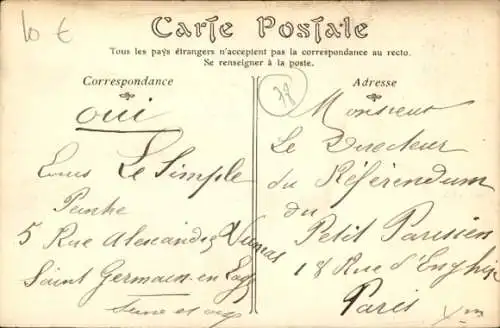 10 €
Carte Postale
Tous les pays étrangers n'acceptent pas la correspondance au recto.
Se renseigner à la poste.
Correspondance
oui
Louis Le Simple
Peintre
5 Rue Alexandre Dumas
Saint Germain-en Laye
Seine et Oise
Adresse
77
Monsieur
Le Directeur
du Référendum
du
Petit Parisien
18 Rue d'Enghien
Paris
Xm